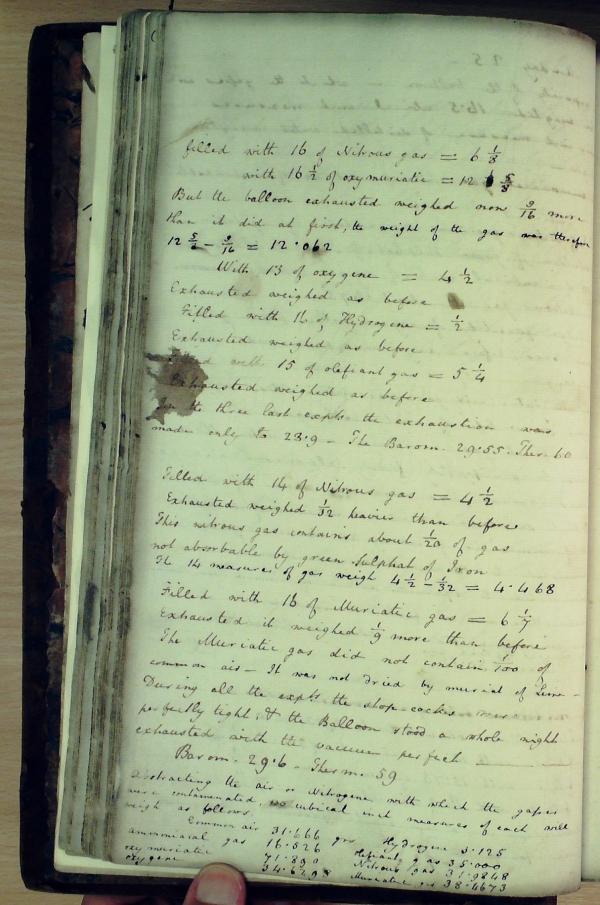 filled with 16 of Nitrous gas = 6 1/8
with 16 1/2 of oxymuriatic = 12 5/8
But the balloon exhausted weighed now 9/16 more
than it did at first, the weight of the gas was therefore
12 5/8 - 9/16 = 12.062
With 13 of oxygene = 4 1/2
Exhausted weighed as before
Filled with 16 of Hydrogene = 1/2
Exhausted weighed as before
with 15 of olefiant gas = 5 1/4
Exhausted weighed as before
In the three last expts the exhaustion was
made only to 28.9 - The Barom. 29.55. Ther. 60
Filled with 14 of Nitrous gas = 4 1/2
Exhausted weighed 1/32 heavier than before
This nitrous gas contains about 1/20 of gas
not absorbable by green Sulphat of Iron
The 14 measures of gas weigh 4 1/2 - 1/32 = 4.468
Filled with 16 of Muriatic gas = 6 1/7
Exhausted it weighed 1/9 more than before
The Muriatic gas did not contain 1/100 of
common air - It was not dried by muriat of Lime -
During all the expts the stop-cocks were
perfectly tight, & the Balloon stood a whole night
exhausted with the vacuum perfect
Barom. 29.6 - Therm. 59
Abstracting the air or Nitrogene with which the gases
were contaminated, 100 cubical inch measures of each will
weigh as follows
Common air 31.666 grs Hydrogene 3.125
ammoniacal gas 16.526 Olefiant gas 35.000
oxymuriatic 71.890 Nitrous gas 31.9848
oxygene Muriatic gas 38.4673